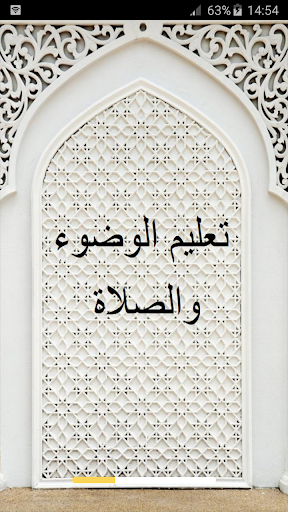 63% 14:54
تعليم الوضوء
والصلاة